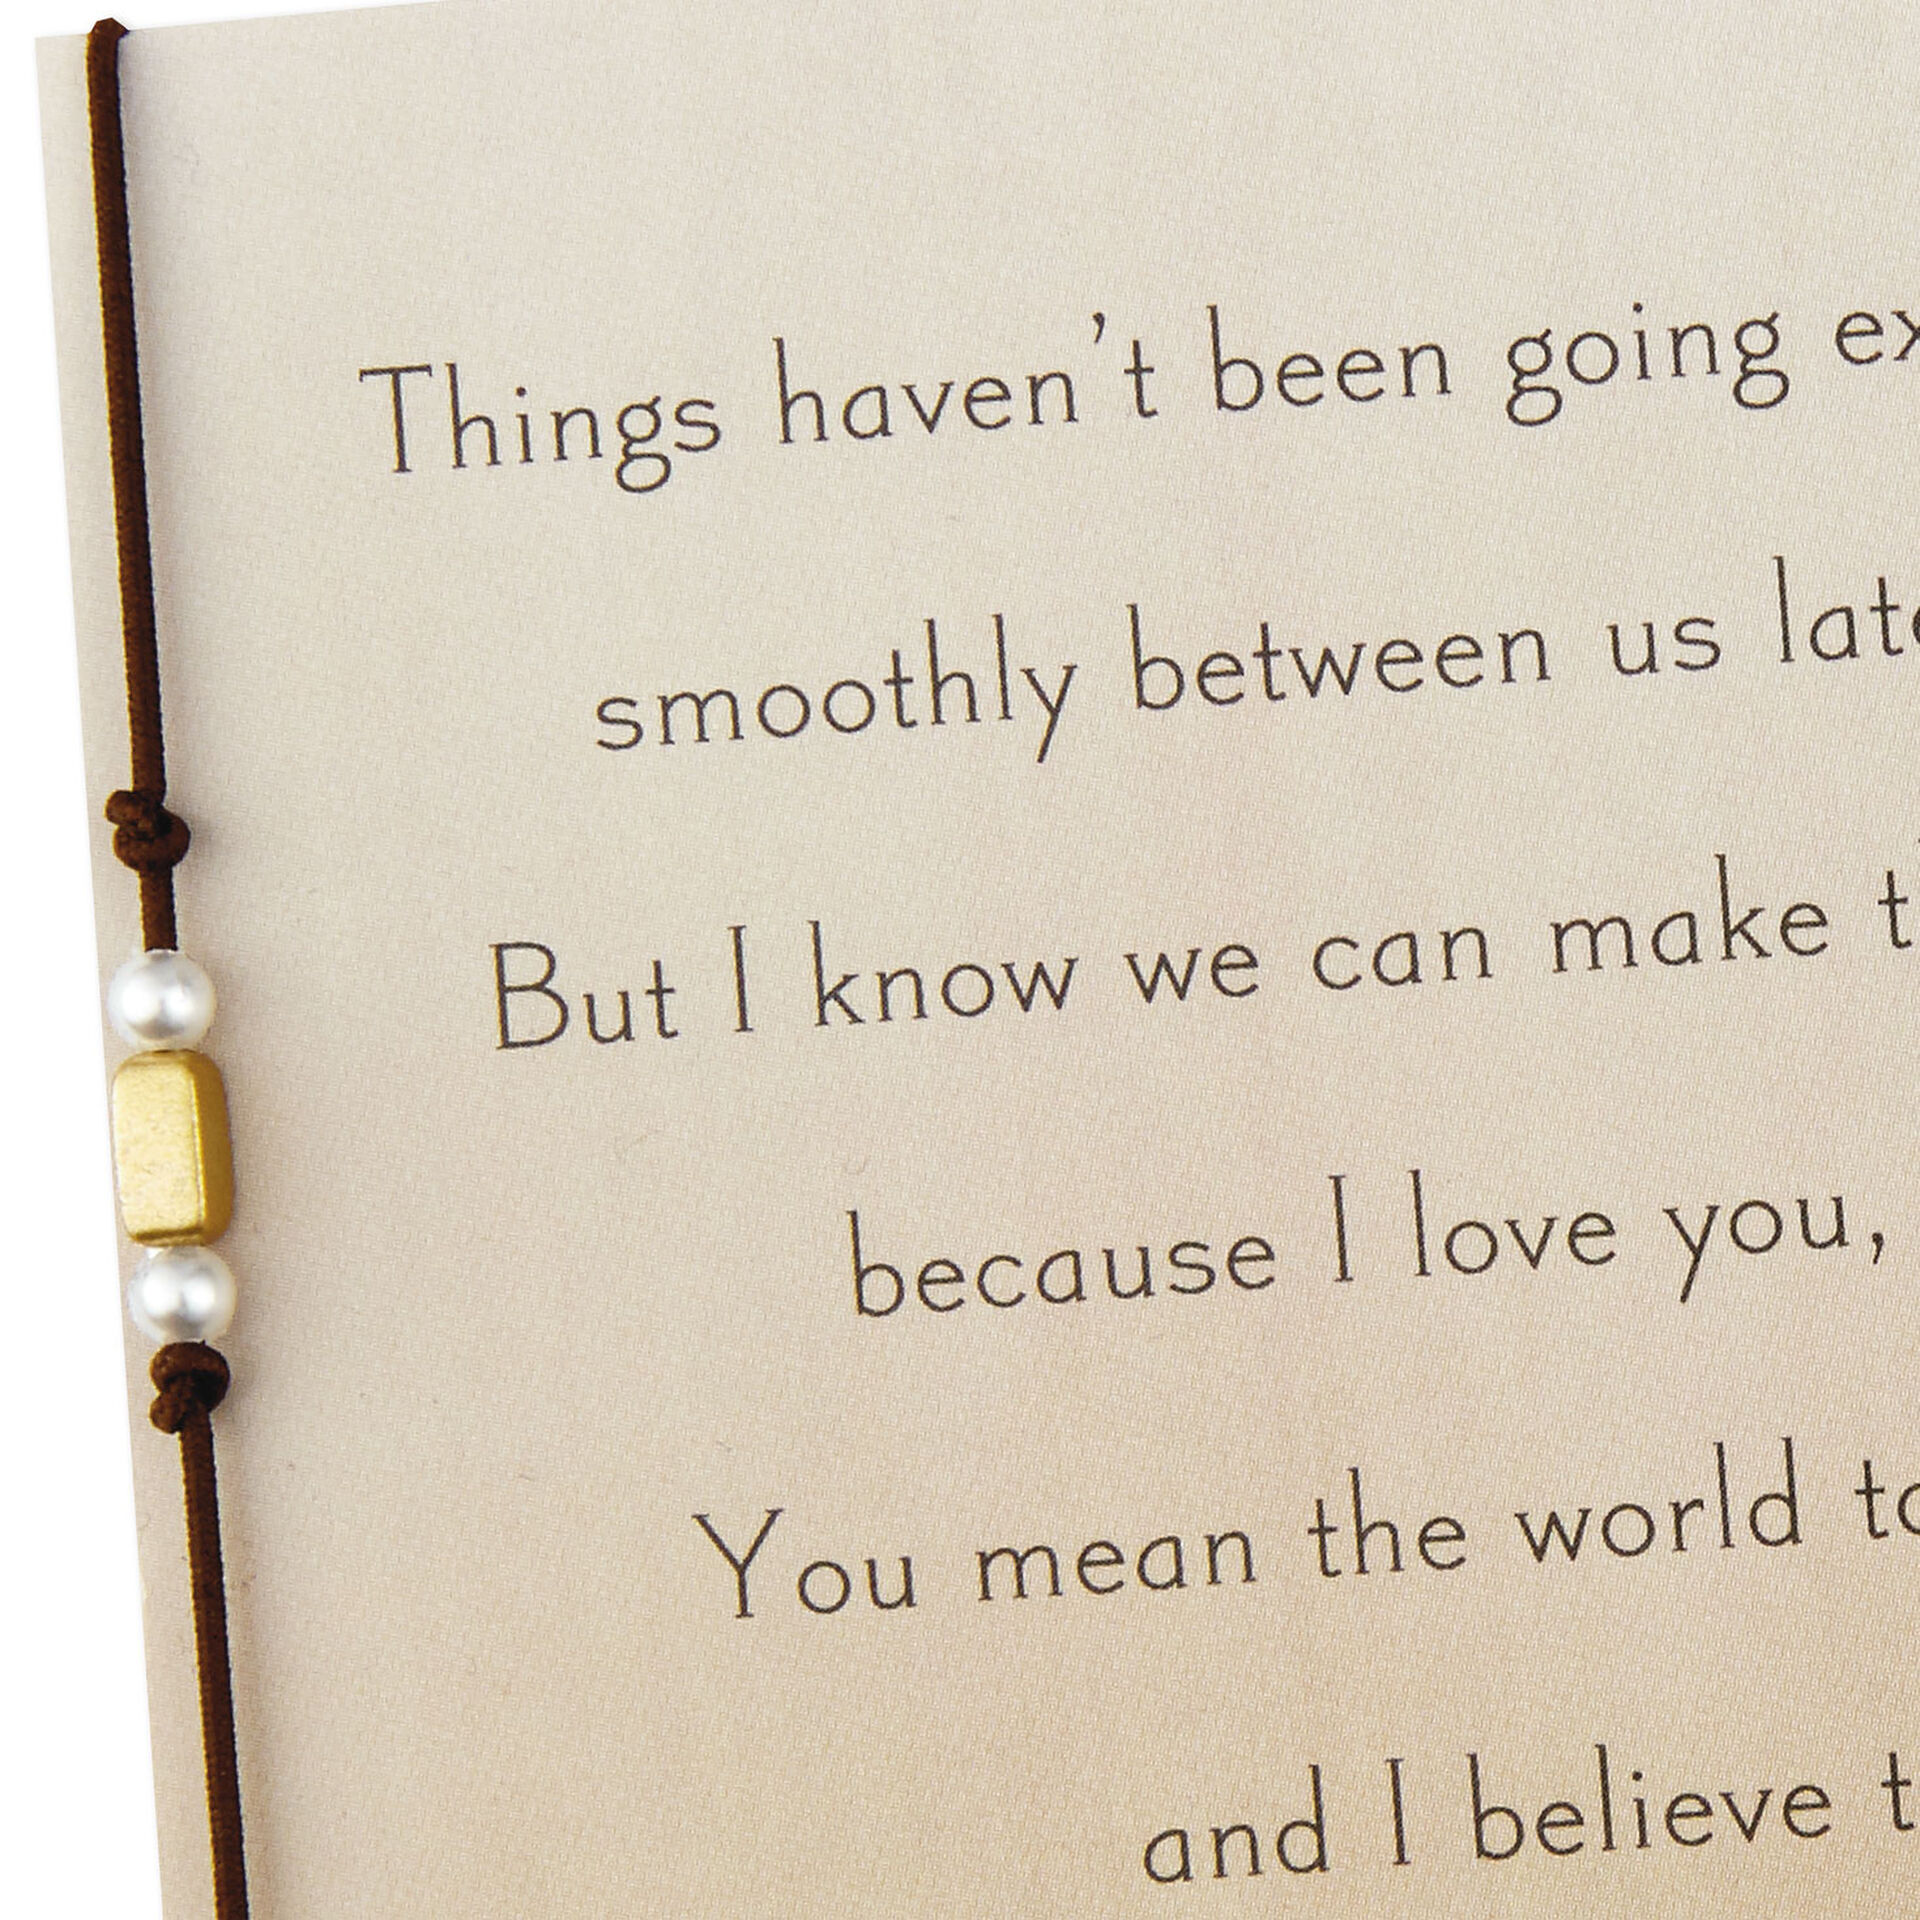 Things haven't been going ex
smoothly between us late
But I know we can make t
because I love you,
You mean the world to
and I believe t